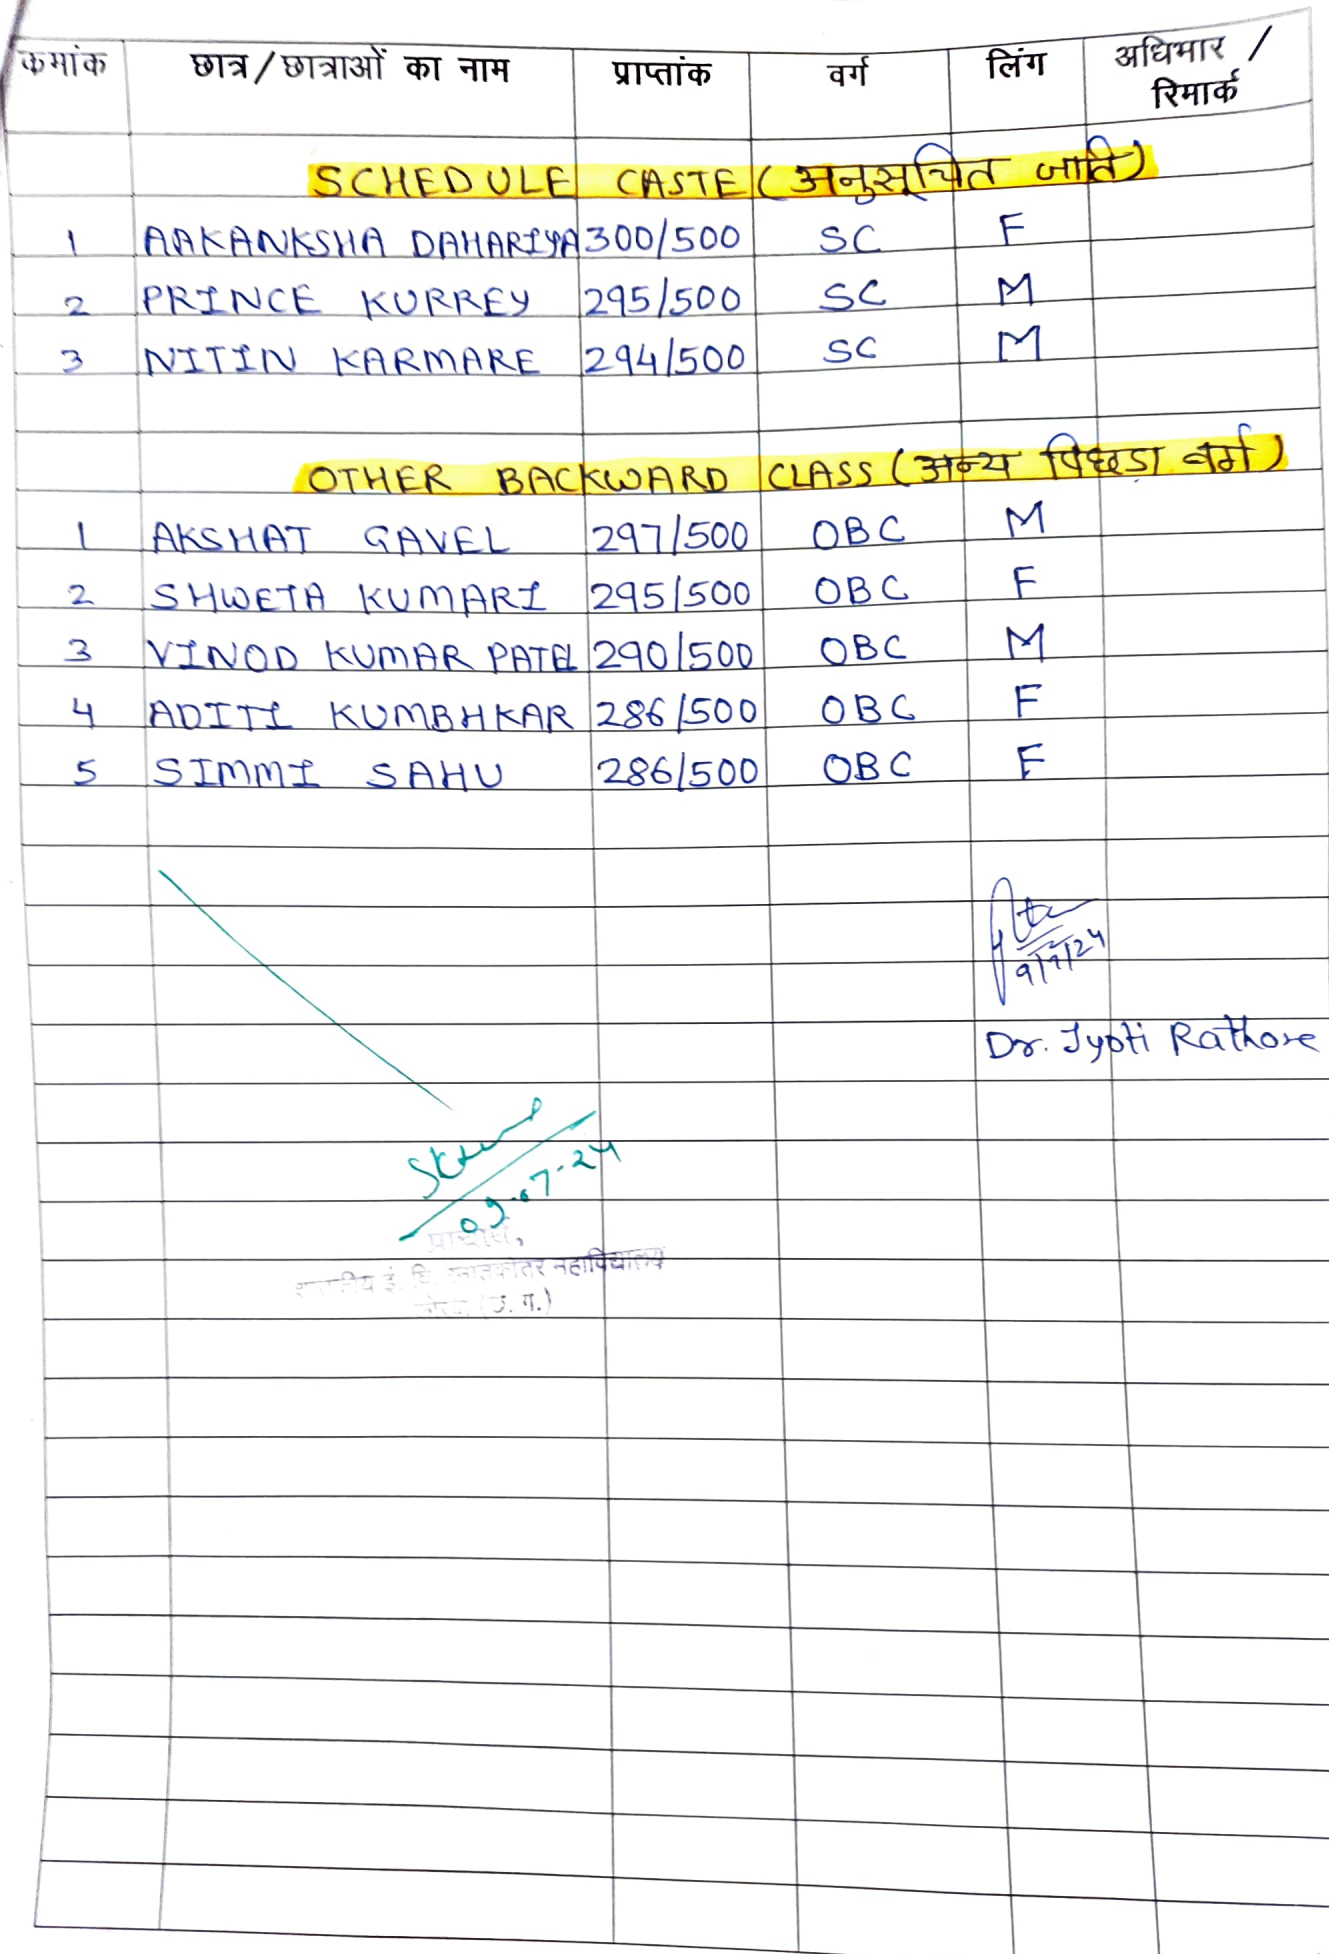 क्रमांक छात्र/छात्राओं का नाम प्राप्तांक वर्ग लिंग अधिभार / रिमार्क
SCHEDULE CASTE (अनुसूचित जाति)
1 AAKANKSHA DAHARIYA 300/500 SC F
2 PRINCE KURREY 295/500 SC M
3 NITIN KARMARE 294/500 SC M
OTHER BACKWARD CLASS (अन्य पिछड़ा वर्ग)
1 AKSHAT GAVEL 297/500 OBC M
2 SHWETA KUMARI 295/500 OBC F
3 VINOD KUMAR PATEL 290/500 OBC M
4 ADITI KUMBHKAR 286/500 OBC F
5 SIMMI SAHU 286/500 OBC F
9/7/24
Dr. Jyoti Rathore
09-07-24
महाविद्यालय
(छ. ग.)